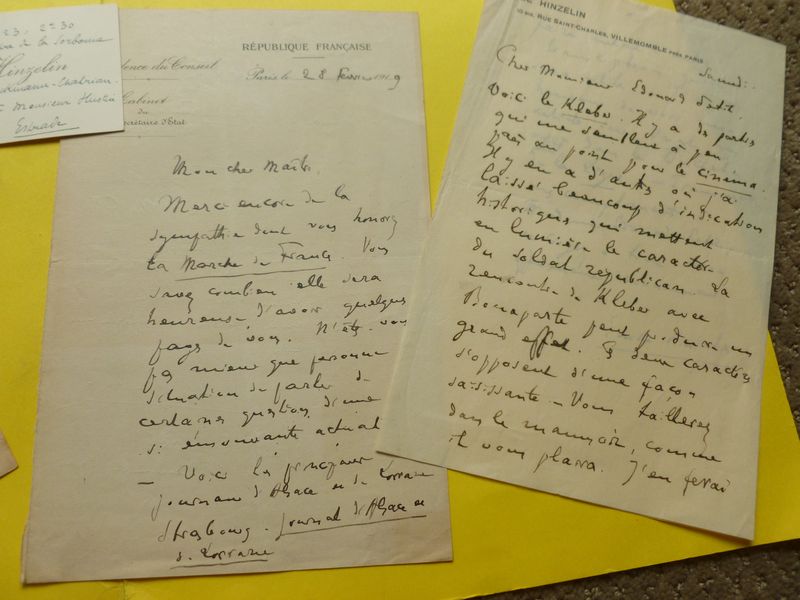 23, 2h30
de la Sorbonne
Hinzelin
Monsieur
RÉPUBLIQUE FRANÇAISE
dence du Conseil
Paris, le 28 février 1919
Cabinet
du
ecrétaire d'État
Mon cher Maître,
Merci encore de la
sympathie dont vous honorez
la Marche de France. Vous
savez combien elle sera
heureuse d'avoir quelques
pages de vous. N'êtes-vous
pas mieux que personne
situation de parler de
certaines questions d'une
si émouvante actualité
— Voici les principaux
journaux d'Alsace et de Lorraine
Strasbourg - Journal d'Alsace et
de Lorraine
HINZELIN
10 BIS, RUE SAINT-CHARLES, VILLEMOMBLE PRÈS PARIS
Samedi.
Cher Monsieur Edouard
Voici le Kleber. Il y a des parties
qui me semblent à peu
près au point pour le cinéma.
Il y en a d'autres où j'ai
laissé beaucoup d'indications
historiques qui mettent
en lumière le caractère
du soldat républicain. La
rencontre de Kleber avec
Bonaparte peut produire un
grand effet. Ces deux caractères
s'opposent d'une façon
saisissante — Vous taillerez
dans le manuscrit, comme
il vous plaira. J'en ferai